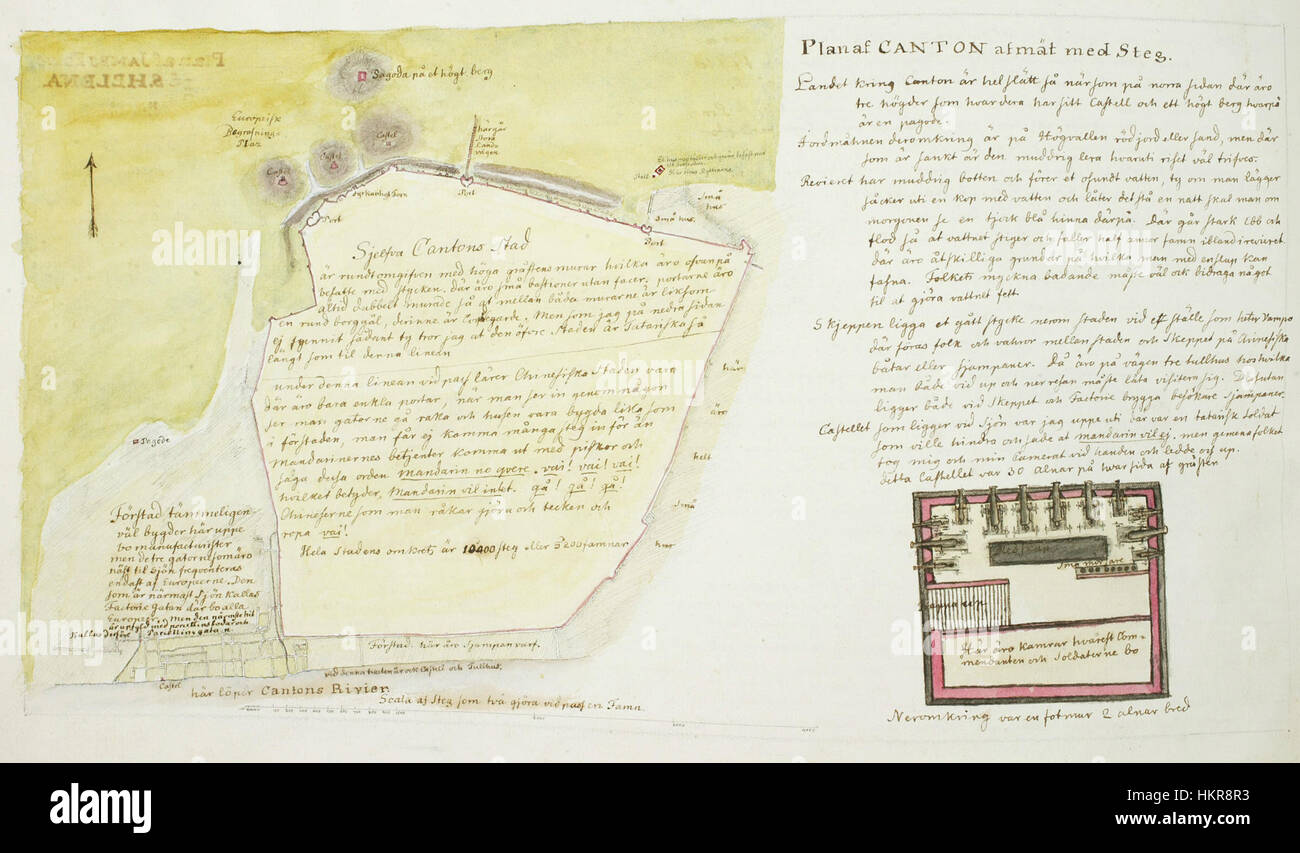 Plan af CANTON afmät med Steg.
Landet kring Canton är helslätt så när som på norra sidan där äro
tre högder som hvardera har sitt Castell och ett högt berg hvarpå
är en pagode.
Jordmåhnen deromkring är på Högvallen röd jord eller sand, men där
som är sankt är den muddrig lera hvaruti riset väl trifves.
Revieret har muddrig botten och förer et osundt vatten, ty om man lägger
såcker uti en kop med vatten och låter det stå en natt skal man om
morgonen se en tjock blå hinna därpå. Där går stark ebb och
flod så at vattnet stiger och faller half annor famn ibland i reviret
där äro åtskilliga grundar på hvilka man med en slup kan
fastna. Folkets myckna badande måste väl ock bidraga något
til at gjöra vattnet fett.
Skjeppen ligga et gått stycke nerom staden vid ett ställe som heter Vampo
där föras folk och varor mellan staden och Skeppet på Chinesiska
båtar eller sjampaner. Då äro på vägen tre tullhus hos hvilka
man både vid up och ner resan måste låta visitera sig. Desutan
ligger både vid Skeppet och Factorie brygga besökare sjampaner.
Castellet som ligger vid Sjön var jag uppe uti där var en tatarsk soldat
som ville hindra och sade at mandarin vil ej. men gemena folket
tog mig och min Camerat vid handen och ledde oss up.
detta Castellet var 30 alnar på hvar sida af gråsten
Små mörsare
Trappa up
Här äro kamrar hvarest Com-
mendanten och Soldaterne bo
Neromkring var en fotmur 2 alnar bred
Plan af
S. HELENA
Pagoda på et högt berg
Europeisk
Begrafnings
Plaz
Castel
Castel
Castel
här går
stora
Lands
vägen
Port
Port
Port
Små hus
Små
hus
Pagode
Sjelfva Cantons Stad
är rundtomgifven med höga gråstens murar hvilka äro ofvan på
besatte med stycken. där äro små bastioner utan facer, portarne äro
altid dubbelt murade så at mellan båda murarne är liksom
en rund borggål, derinne är Corpsgarde. Men som jag på nedra sidan
ej funnit sådant ty tror jag at den öfvre Staden är Tatarska så
långt som til denna linean
under denna linean vid pass lärer Chinesiska Staden vara
där äro bara enkla portar, när man ser in genom någon
ser man gatorne gå raka och husen vara bygda lika som
i förstaden, man får ej komma många steg in för än
Mandarinernes betjenter komma ut med piskor och
säga dessa orden mandarin no qvere. vai! vai! vai!
hvilket betyder, Mandarin vil intet. gå! gå! gå!
Chineserne som man råkar gjöra och tecken och
ropa vai!
Hela Stadens omkrets är 10400 steg eller 5200 famnar
här
äro
helt
små
hus
Förstad tämmeligen
väl bygder här uppe
bo manufacturister
men de tre gator som äro
näst til sjön frequenteras
endast af Europeerne. Den
som är närmast sjön kallas
Factorie gatan där bo alla
Europeer. Men den närmste hit
är upfyld med porcellins bodar och
kallas derföre Porcellins gatan
Förstad. här äro Sjampan varf.
vid denna trackten är ock Castell och Tullhus.
Castel
här löper Cantons Rivier.
Scala af Steg som två gjöra vid pass en Famn
alamy
alamy
Image ID: HKR8R3
www.alamy.com